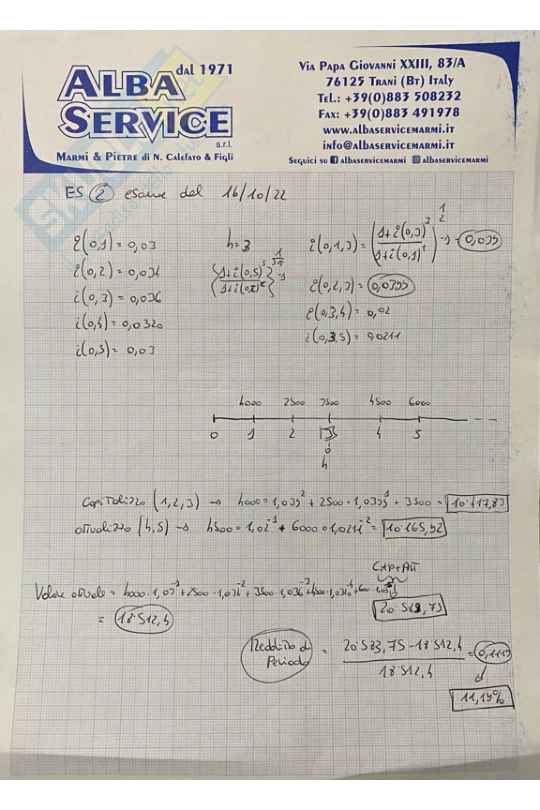 ALBA dal 1971
SERVICE
s.r.l.
MARMI & PIETRE di N. Calefato & Figli
VIA PAPA GIOVANNI XXIII, 83/A
76125 TRANI (BT) ITALY
TEL.: +39(0)883 508232
FAX: +39(0)883 491978
www.albaservicemarmi.it
info@albaservicemarmi.it
Seguici su albaservicemarmi albaservicemarmi
ES 2 esame del 16/10/22
i(0,1) = 0,03 h=3 i(0,1,3) = ((1+i(0,3)^3)/(1+i(0,1)^1))^(1/2) -1 = 0,039
i(0,2) = 0,034
i(0,2,3) = 0,0399
i(0,3) = 0,036
i(0,3,4) = 0,02
i(0,4) = 0,0320
i(0,3,5) = 0,0211
i(0,5) = 0,03
4000 2500 3500 4500 6000
0 1 2 3 4 5
h
Capitalizzo (1,2,3) → 4000·1,039^2 + 2500·1,0399^1 + 3500 = 10'417,83
attualizzo (4,5) → 4500·1,02^-1 + 6000·1,0211^-2 = 10'165,92
CAP+ATT
Valore attuale = 4000·1,03^-1 + 2500·1,034^-2 + 3500·1,036^-3
20'583,75
= 18'512,4
Reddito di Periodo = (20'583,75 - 18'512,4)/18'512,4 = 0,1119
11,19%